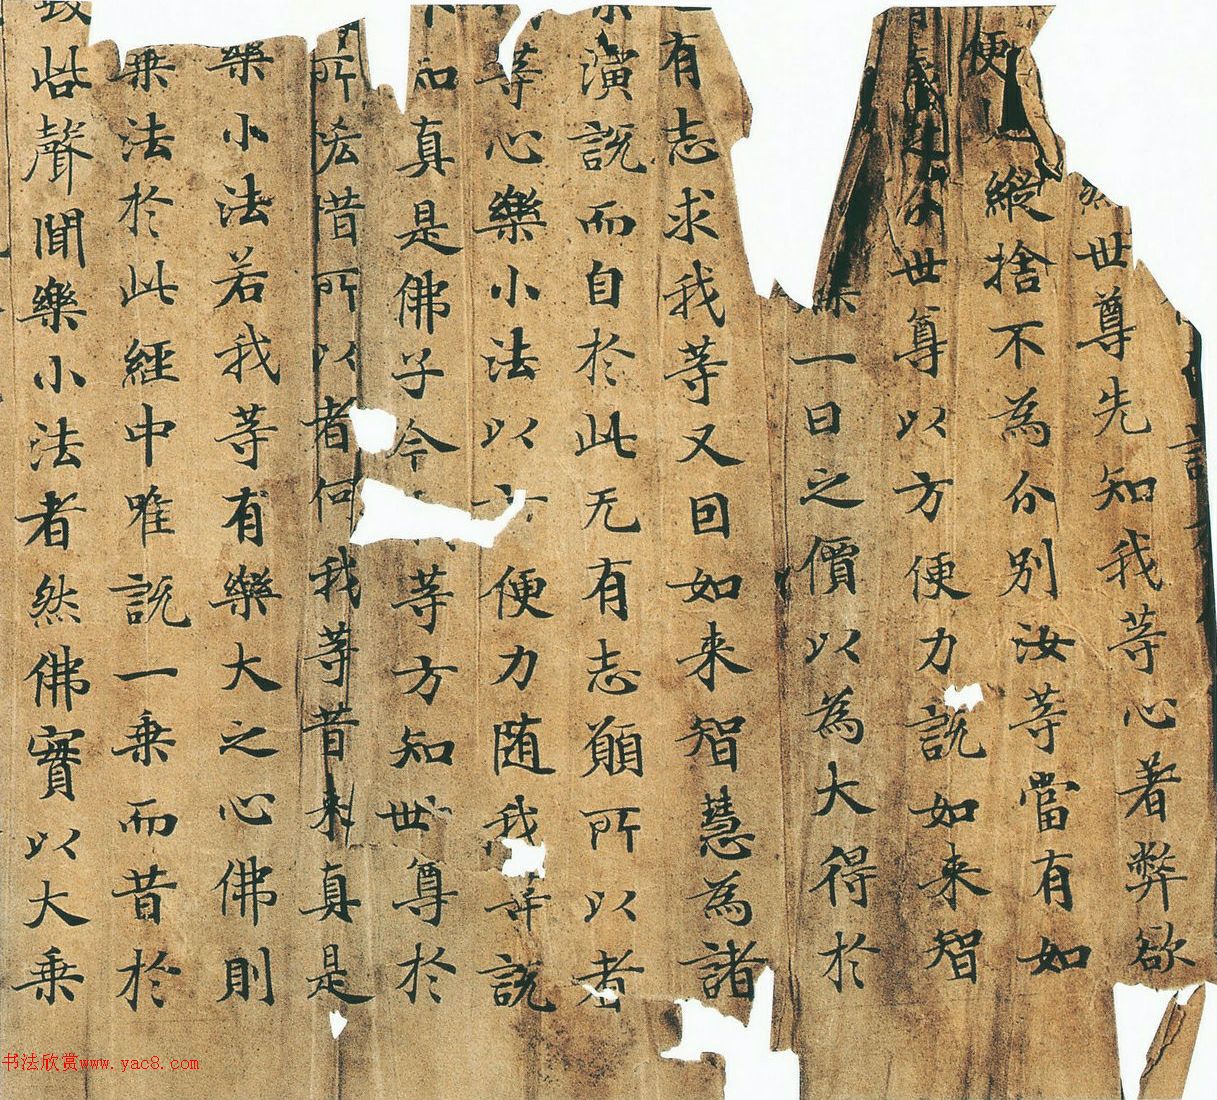 然世尊先知我等心著弊欲
便縱捨不為分別汝等當有如
分世尊以方便力說如来智
一日之價以為大得於
有志求我等又回如来智慧為諸
演說而自於此无有志願所以者
等心樂小法以方便力随我等說
知真是佛子今等方知世尊於
所悋昔所以者何我等昔来真是
樂小法若我等有樂大之心佛則
乗法於此經中唯說一乗而昔於
呰聲聞樂小法者然佛實以大乗
书法欣赏www.yac8.com